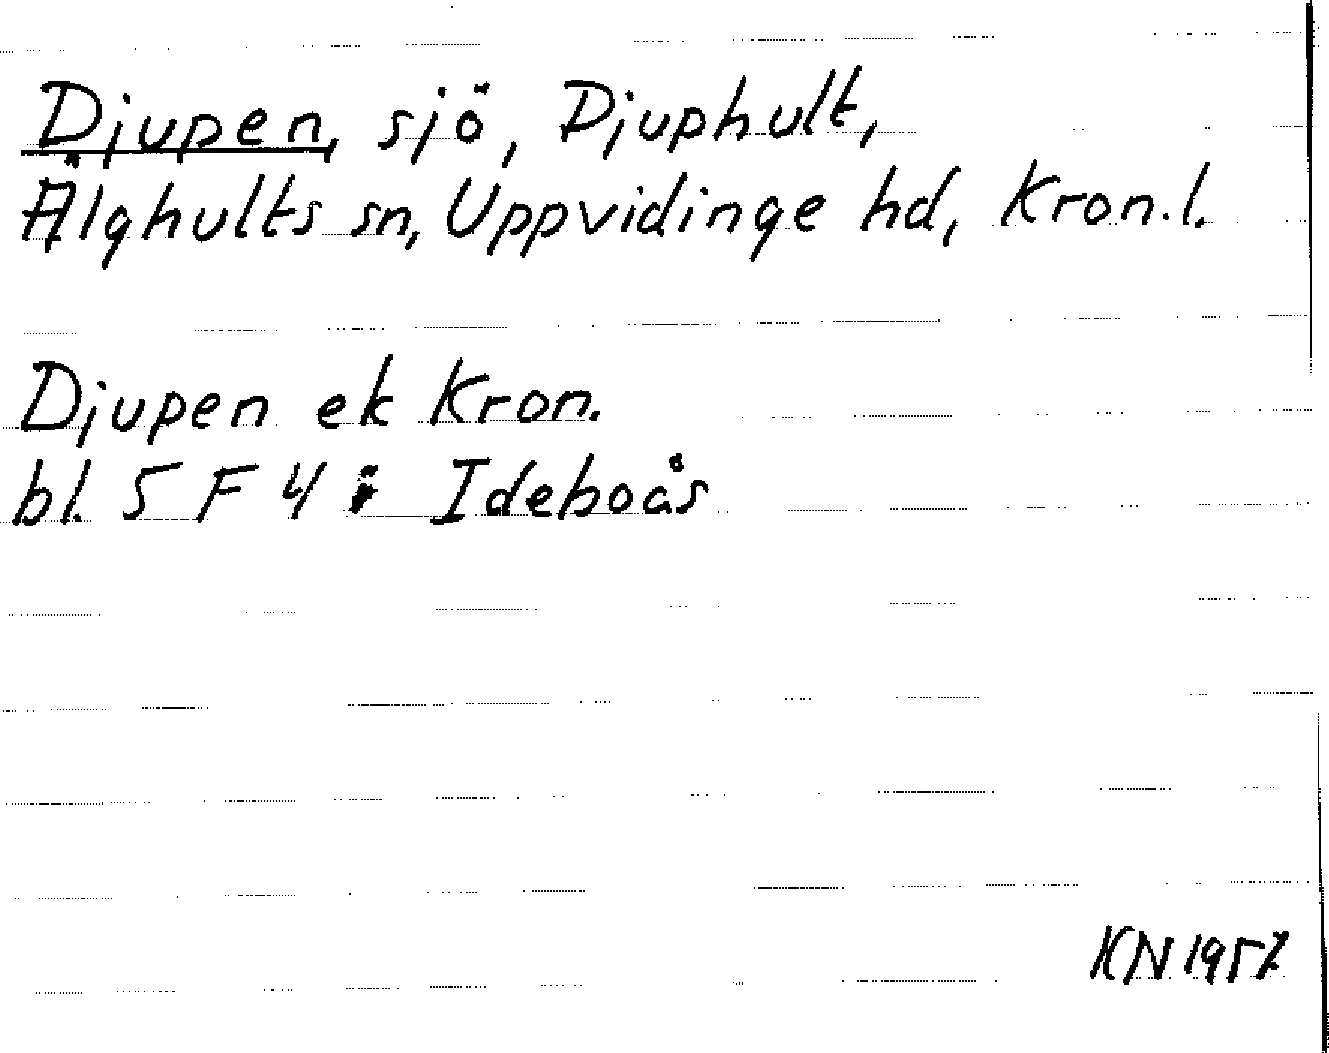 Djupen, sjö, Djuphult,
Älghults sn, Uppvidinge hd, Kron.l.
Djupen ek Kron.
bl. 5 F 4 i Ideboås
KN 1957